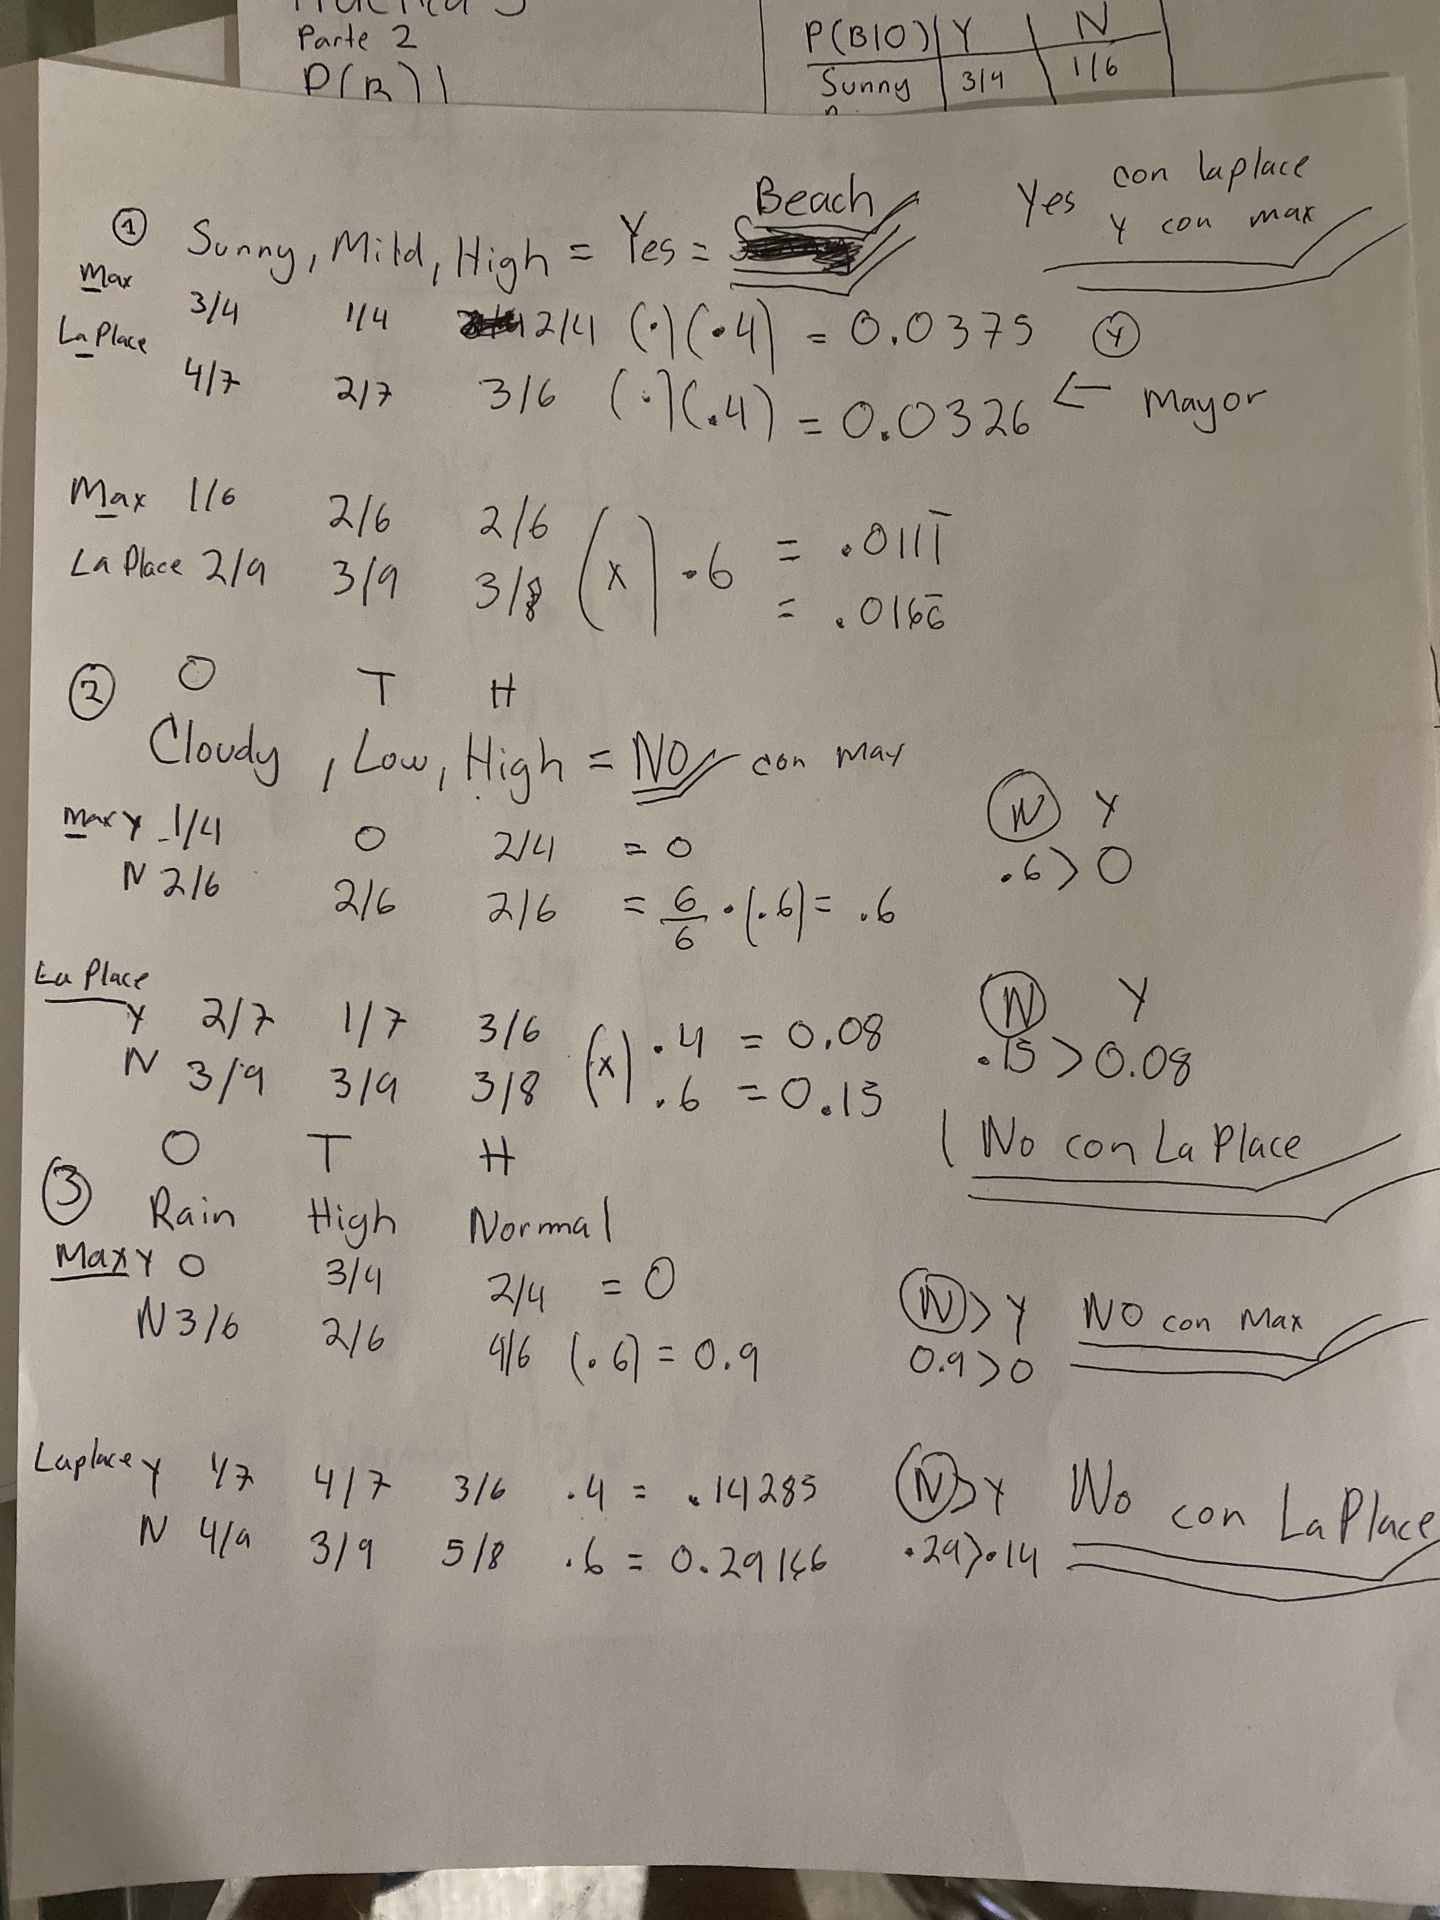 Parte 2
P(B)|
P(B|O)| Y | N
Sunny | 3/4 | 1/6
① Sunny, Mild, High = Yes = Beach
Yes con laplace
y con max
Max 3/4 1/4 2/4 (·)(·4) = 0.0375 Ⓨ
La Place 4/7 2/7 3/6 (·)(.4) = 0.0326 ← Mayor
Max 1/6 2/6 2/6 = .0111̅
La Place 2/9 3/9 3/8 (x) ·6 = .0166̅
② O T H
Cloudy, Low, High = NO con max
Max Y 1/4 0 2/4 = 0
N 2/6 2/6 2/6 = 6/6 · (.6) = .6
Ⓝ Y
.6 > 0
La Place
Y 2/7 1/7 3/6 (x) .4 = 0.08
N 3/9 3/9 3/8 .6 = 0.15
Ⓝ Y
.15 > 0.08
No con La Place
③ O T H
Rain High Normal
Max Y 0 3/4 2/4 = 0
N 3/6 2/6 4/6 (.6) = 0.9
Ⓝ > Y NO con Max
0.9 > 0
Laplace Y 1/7 4/7 3/6 .4 = .14285
N 4/9 3/9 5/8 .6 = 0.29166
Ⓝ > Y No con La Place
.29 > .14